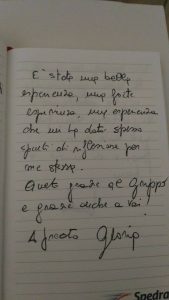 E' stata una bella
esperienza, una forte
esperienza, una esperienza
che mi ha dato spesso
spunti di riflessione per
me stessa.
grazie al Gruppo
e grazie anche a voi!
Gloria
Spedra